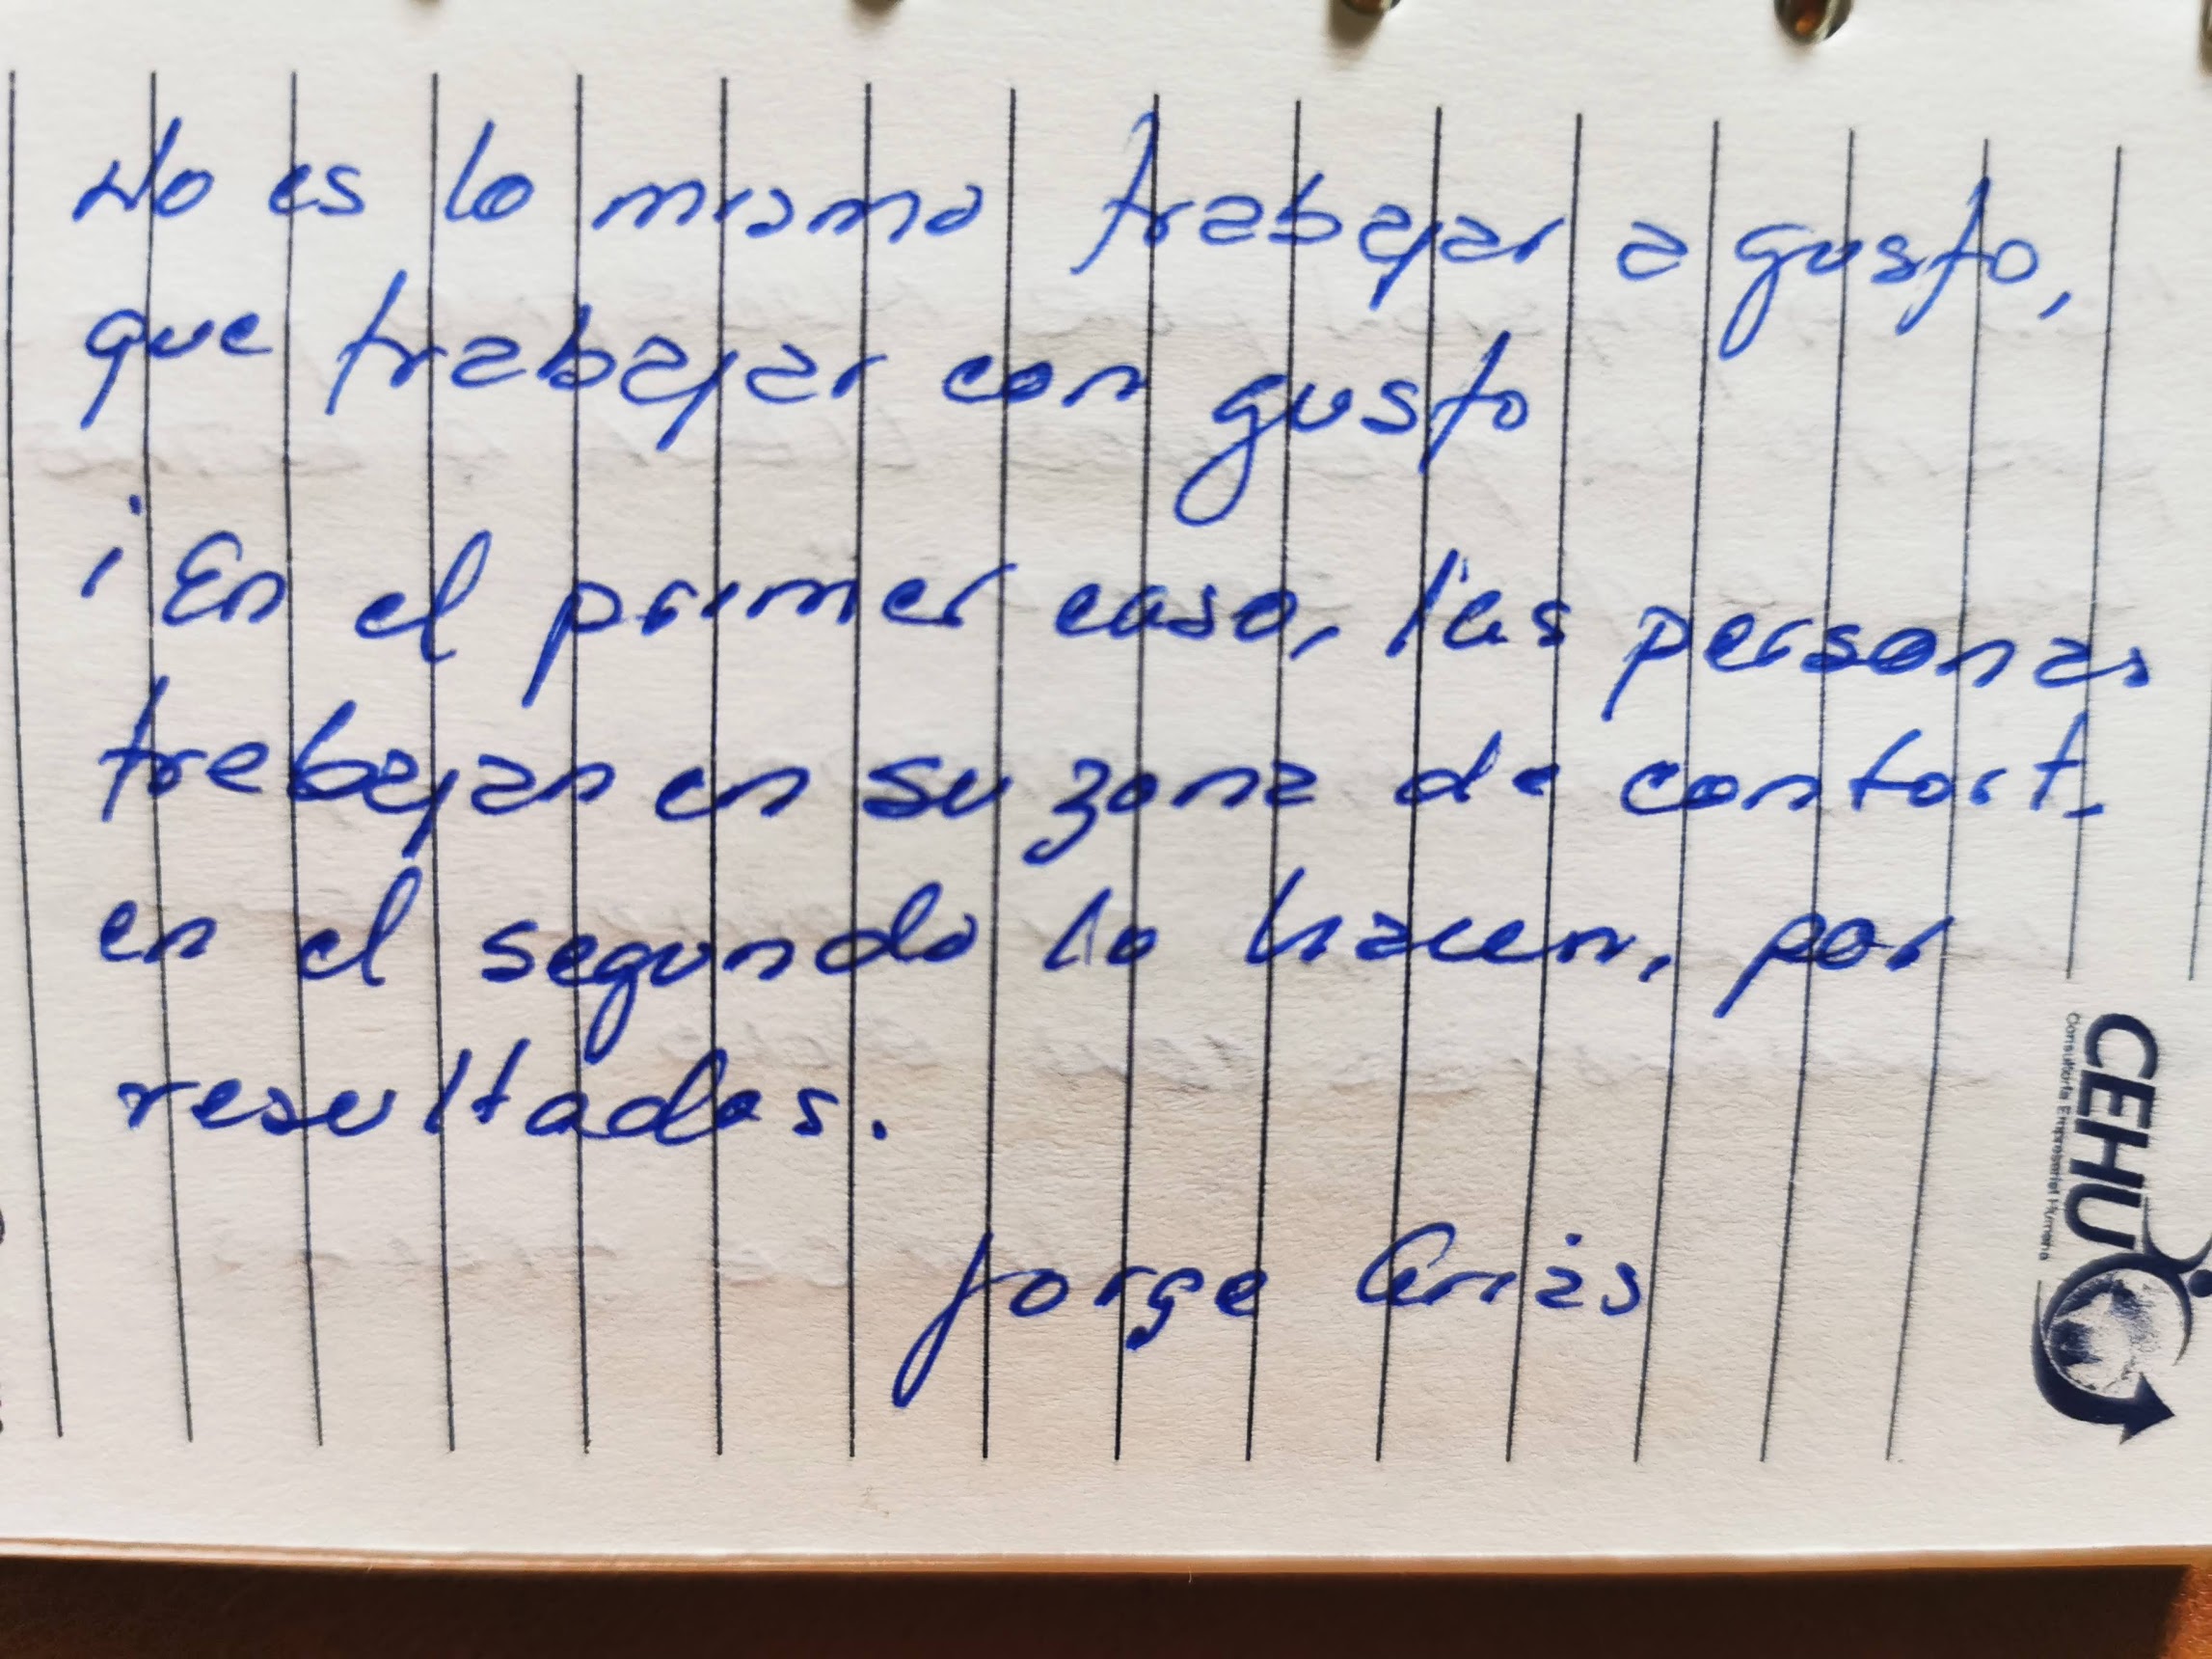 No es lo mismo trabajar a gusto,
que trabajar con gusto
¡En el primer caso, las personas
trabajan en su zona de confort.
en el segundo lo hacen, por
resultados.
Jorge Arias
CEHU
Consultoría Empresarial Humana